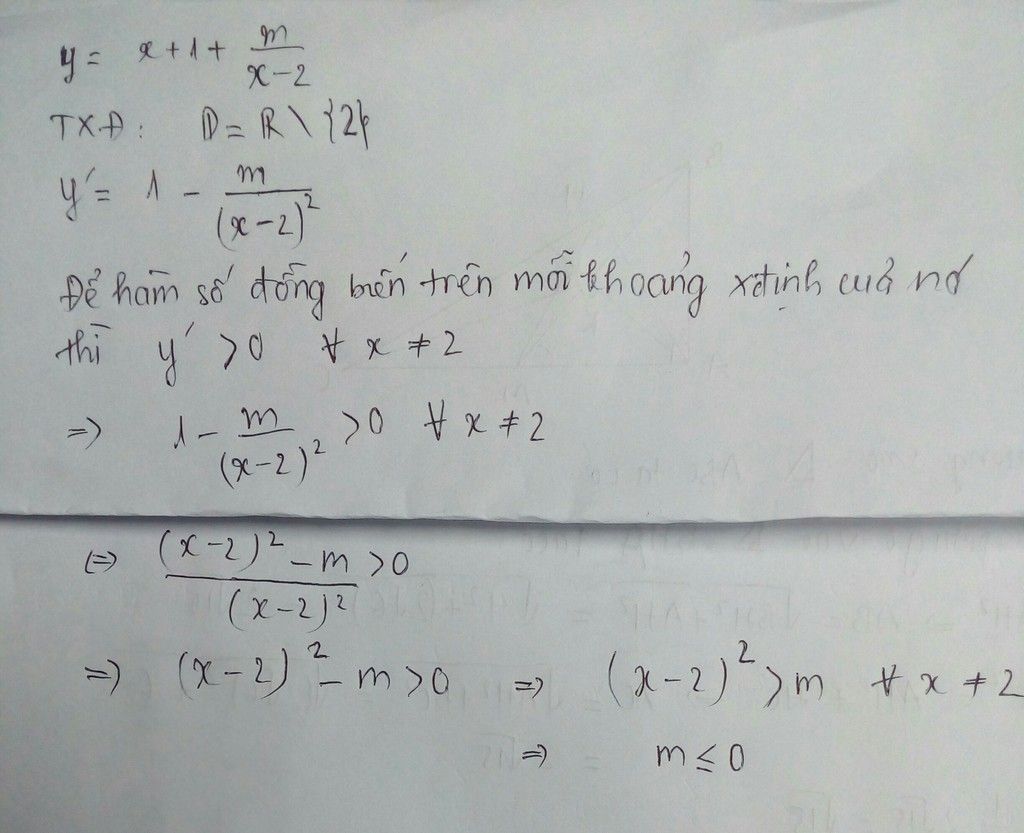 y = x + 1 + m/(x-2)
TXĐ: D = R \ {2}
y' = 1 - m/(x-2)²
Để hàm số đồng biến trên mỗi khoảng xđịnh của nó
thì y' > 0 ∀ x ≠ 2
=> 1 - m/(x-2)² > 0 ∀ x ≠ 2
<=> ((x-2)² - m)/(x-2)² > 0
=> (x-2)² - m > 0 => (x-2)² > m ∀ x ≠ 2
=> m ≤ 0